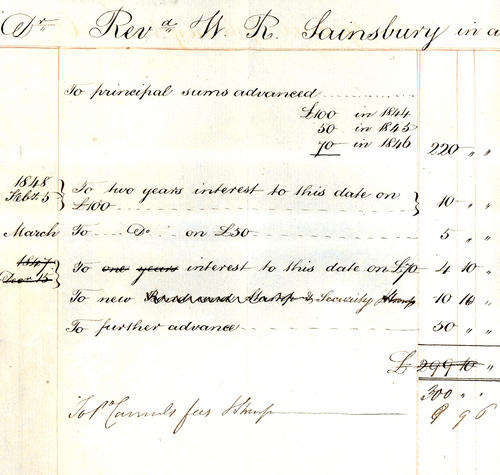 Dr Revd W. R. Sainsbury in a
To principal sums advanced
£100 in 1844
50 in 1845
70 in 1846 220 " "
1848 Febr. 5 To two years interest to this date on £100 10 " "
March To Do on £50 5 " "
1847 Decr 15 To one years interest to this date on £70 4 10 "
To new Security Stamp 10 10 "
To further advance 50 " "
£ 299 10 "
300 " "
To Pd fees & Stamp 9 6